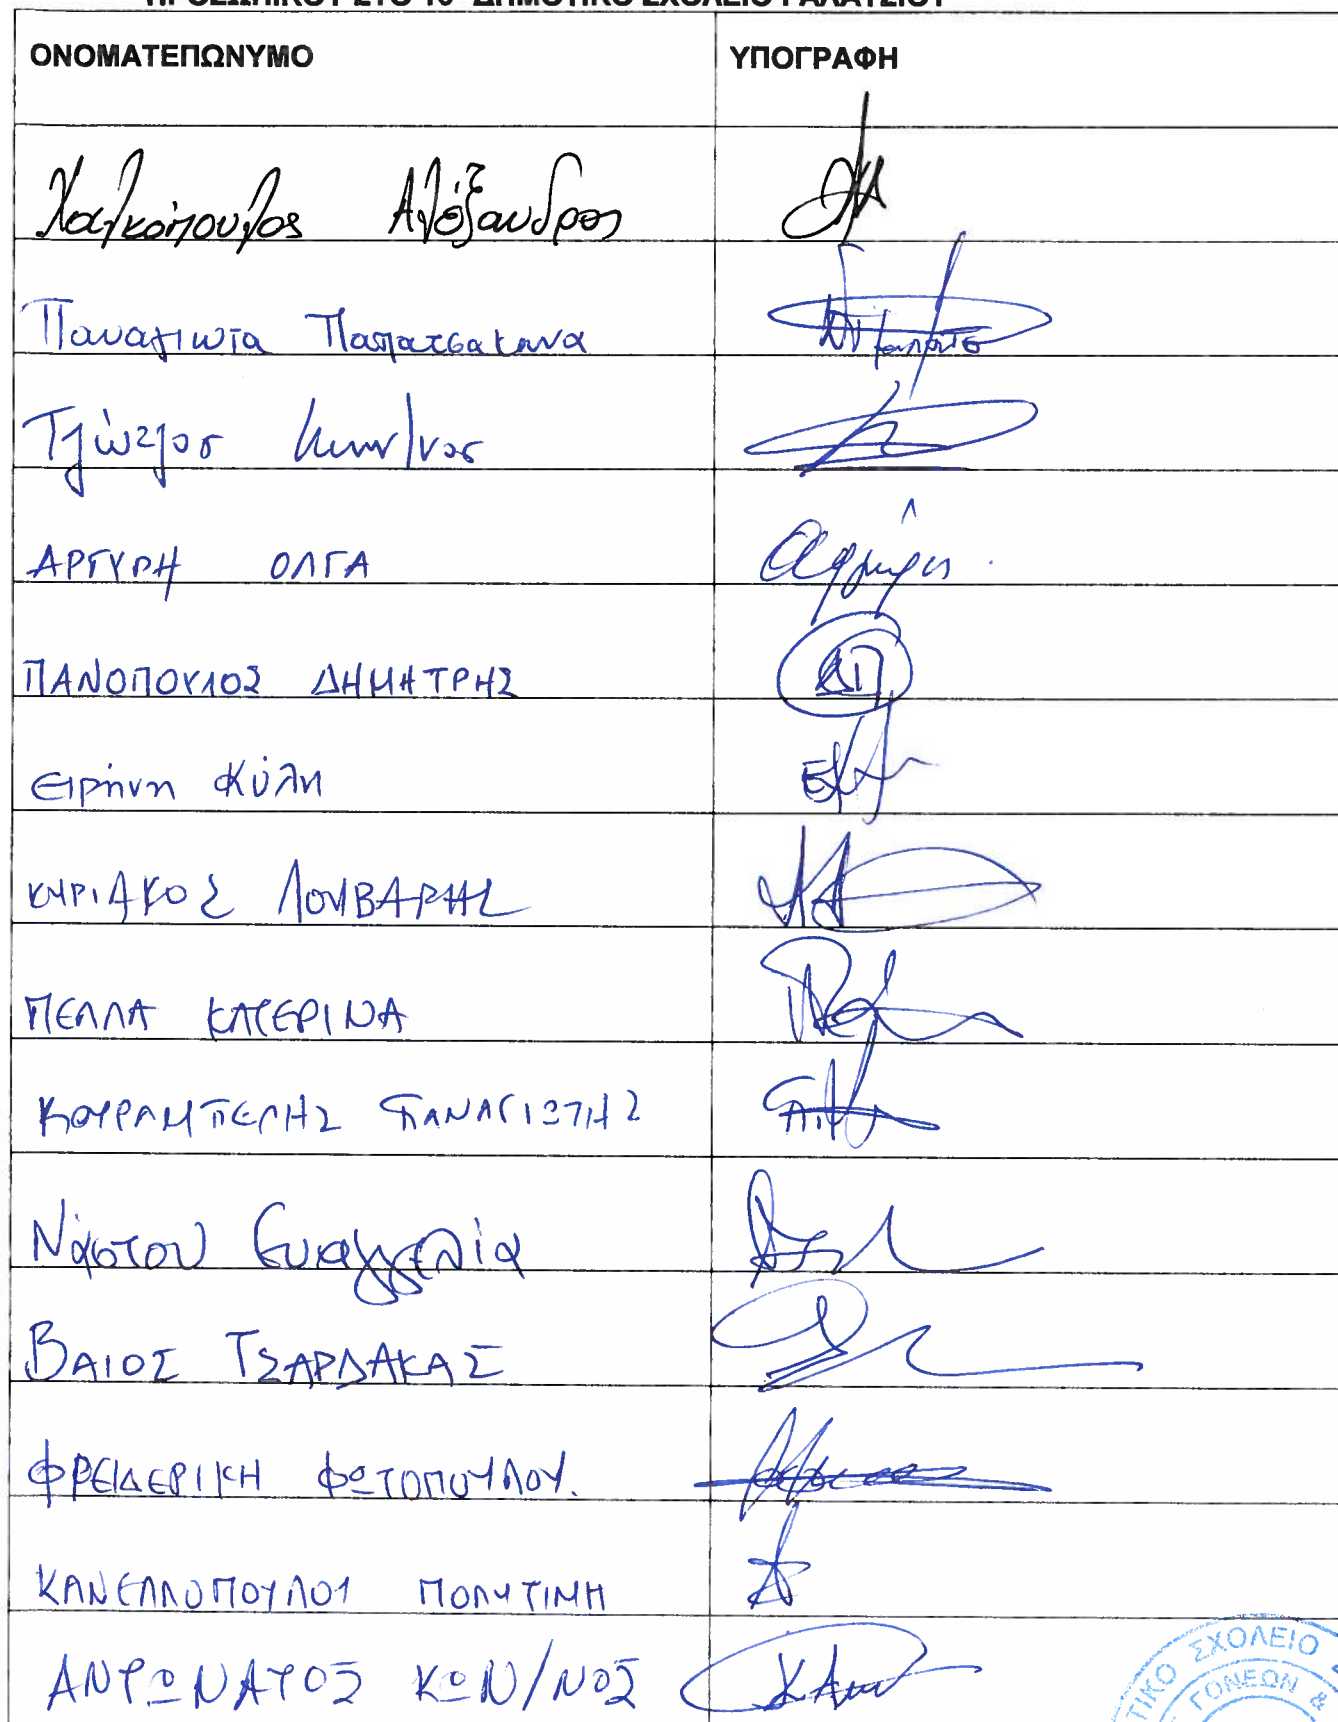 ΠΡΟΣΩΠΙΚΟΥ ΣΤΟ 10º ΔΗΜΟΤΙΚΟ ΣΧΟΛΕΙΟ ΓΑΛΑΤΣΙΟΥ
ΟΝΟΜΑΤΕΠΩΝΥΜΟ ΥΠΟΓΡΑΦΗ
Χαλκόπουλος Αλέξανδρος
Παναγιωτα Παπατσακωνα
Κων/νος
ΑΡΓΥΡΗ ΟΛΓΑ
ΠΑΝΟΠΟΥΛΟΣ ΔΗΜΗΤΡΗΣ ΔΠ
Ειρήνη Κύλη
ΚΥΡΙΑΚΟΣ ΛΟΥΒΑΡΗΣ
ΠΕΛΛΑ ΚΑΤΕΡΙΝΑ
ΚΟΥΡΑΜΠΕΛΗΣ ΠΑΝΑΓΙΩΤΗΣ
Νάστου Ευαγγελία
ΒΑΙΟΣ ΤΣΑΡΔΑΚΑΣ
ΦΡΕΙΔΕΡΙΚΗ ΦΩΤΟΠΟΥΛΟΥ.
ΚΑΝΕΛΛΟΠΟΥΛΟΥ ΠΟΛΥΤΙΜΗ
ΑΝΤΩΝΑΤΟΣ ΚΩΝ/ΝΟΣ
ΤΙΚΟ ΣΧΟΛΕΙΟ
ΓΟΝΕΩΝ &